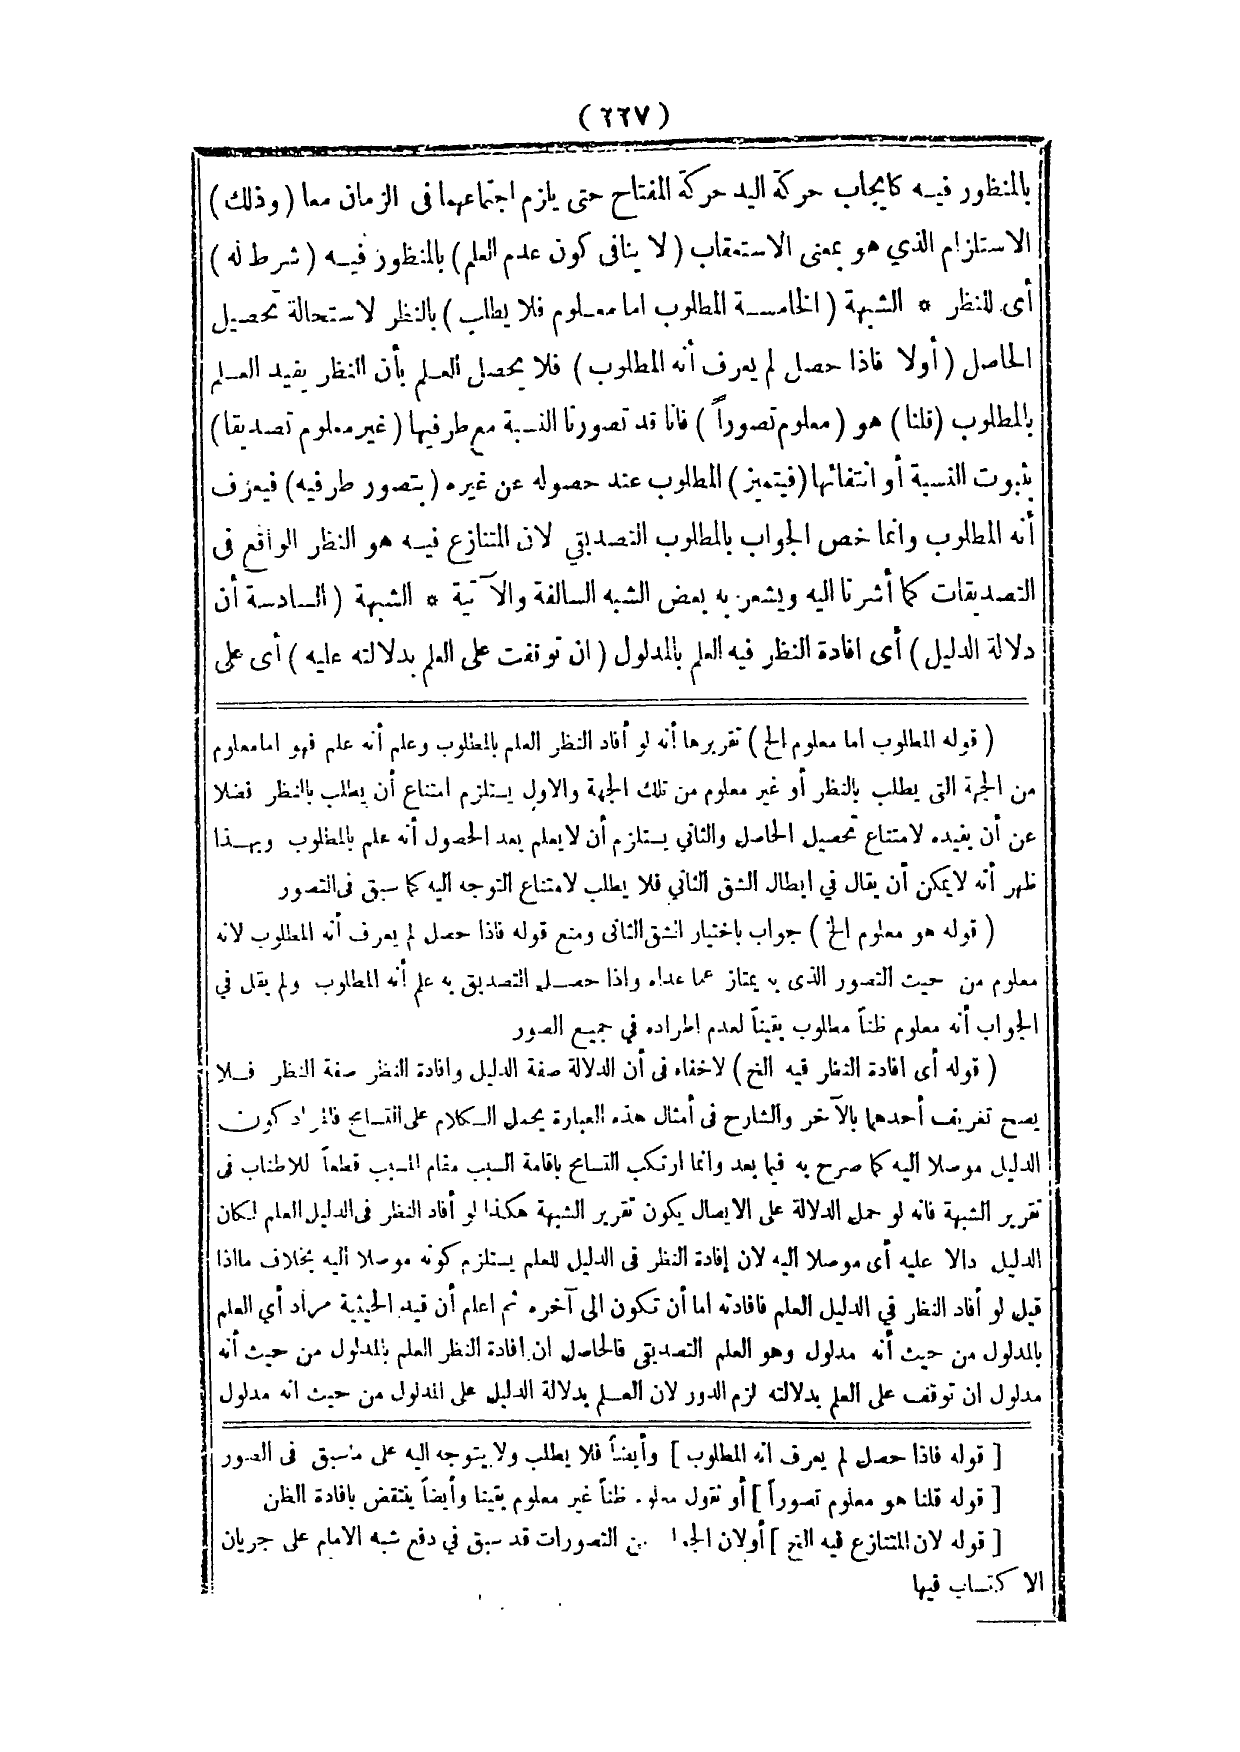 (٢٢٧)
بالمنظور فيه كايجاب حركة اليد حركة المفتاح حتى يلزم اجتماعهما فى الزمان معا (وذلك)
الاستلزام الذي هو بمعنى الاستعقاب (لا ينافى كون عدم العلم) بالمنظور فيه (شرط له)
أى للنظر * الشبهة (الخامسة المطلوب اما معلوم فلا يطلب) بالنظر لاستحالة تحصيل
الحاصل (أولا فاذا حصل لم يعرف أنه المطلوب) فلا يحصل العلم بأن النظر يفيد العلم
بالمطلوب (قلنا) هو (معلوم تصوراً) فانا قد تصورنا النسبة مع طرفيها (غير معلوم تصديقا)
بثبوت النسبة أو انتفائها (فيتميز) المطلوب عند حصوله عن غيره (بتصور طرفيه) فيعرف
أنه المطلوب وانما خص الجواب بالمطلوب التصديقي لان المتنازع فيه هو النظر الواقع فى
التصديقات كما أشرنا اليه ويشعر به بعض الشبه السالفة والآتية * الشبهة (السادسة أن
دلالة الدليل) أى افادة النظر فيه العلم بالمدلول (ان توقفت على العلم بدلالته عليه) أى على
(قوله المطلوب اما معلوم الخ) تقريرها أنه لو أفاد النظر العلم بالمطلوب وعلم أنه علم فهو اما معلوم
من الجهة التى يطلب بالنظر أو غير معلوم من تلك الجهة والاول يستلزم امتناع أن يطلب بالنظر فضلا
عن أن يفيده لامتناع تحصيل الحاصل والثاني يستلزم أن لا يعلم بعد الحصول أنه علم بالمطلوب وبهذا
ظهر أنه لا يمكن أن يقال في ابطال الشق الثاني فلا يطلب لامتناع التوجه اليه كما سبق فى التصور
(قوله هو معلوم الخ) جواب باختيار الشق الثانى ومنع قوله فاذا حصل لم يعرف أنه المطلوب لانه
معلوم من حيث التصور الذى به يمتاز عما عداه واذا حصل التصديق به علم أنه المطلوب ولم يقل في
الجواب أنه معلوم ظناً مطلوب يقيناً لعدم اطراده في جميع الصور
(قوله أى افادة النظر فيه الخ) لاخفاء فى أن الدلالة صفة الدليل وافادة النظر صفة النظر فلا
يصح تعريف أحدهما بالآخر والشارح فى أمثال هذه العبارة يحمل الكلام على التسامح فالمراد كون
الدليل موصلا اليه كما صرح به فيما بعد وانما ارتكب التسامح باقامة السبب مقام المسبب قطعاً للاطناب فى
تقرير الشبهة فانه لو حمل الدلالة على الايصال يكون تقرير الشبهة هكذا لو أفاد النظر فى الدليل العلم لكان
الدليل دالا عليه أى موصلا اليه لان إفادة النظر فى الدليل للعلم يستلزم كونه موصلا اليه بخلاف مااذا
قيل لو أفاد النظر في الدليل العلم فافادته اما أن تكون الى آخره ثم اعلم أن قيد الحيثية مراد أي العلم
بالمدلول من حيث أنه مدلول وهو العلم التصديقي فالحاصل ان افادة النظر العلم بالمدلول من حيث أنه
مدلول ان توقف على العلم بدلالته لزم الدور لان العلم بدلالة الدليل على المدلول من حيث انه مدلول
[قوله فاذا حصل لم يعرف انه المطلوب] وأيضاً فلا يطلب ولا يتوجه اليه على ماسبق فى الصور
[قوله قلنا هو معلوم تصوراً] أو نقول ظناً غير معلوم يقينا وأيضاً ينتقض بافادة الظن
[قوله لان المتنازع فيه الخ] أولان التصورات قد سبق في دفع شبه الامام على جريان
الاكتساب فيها